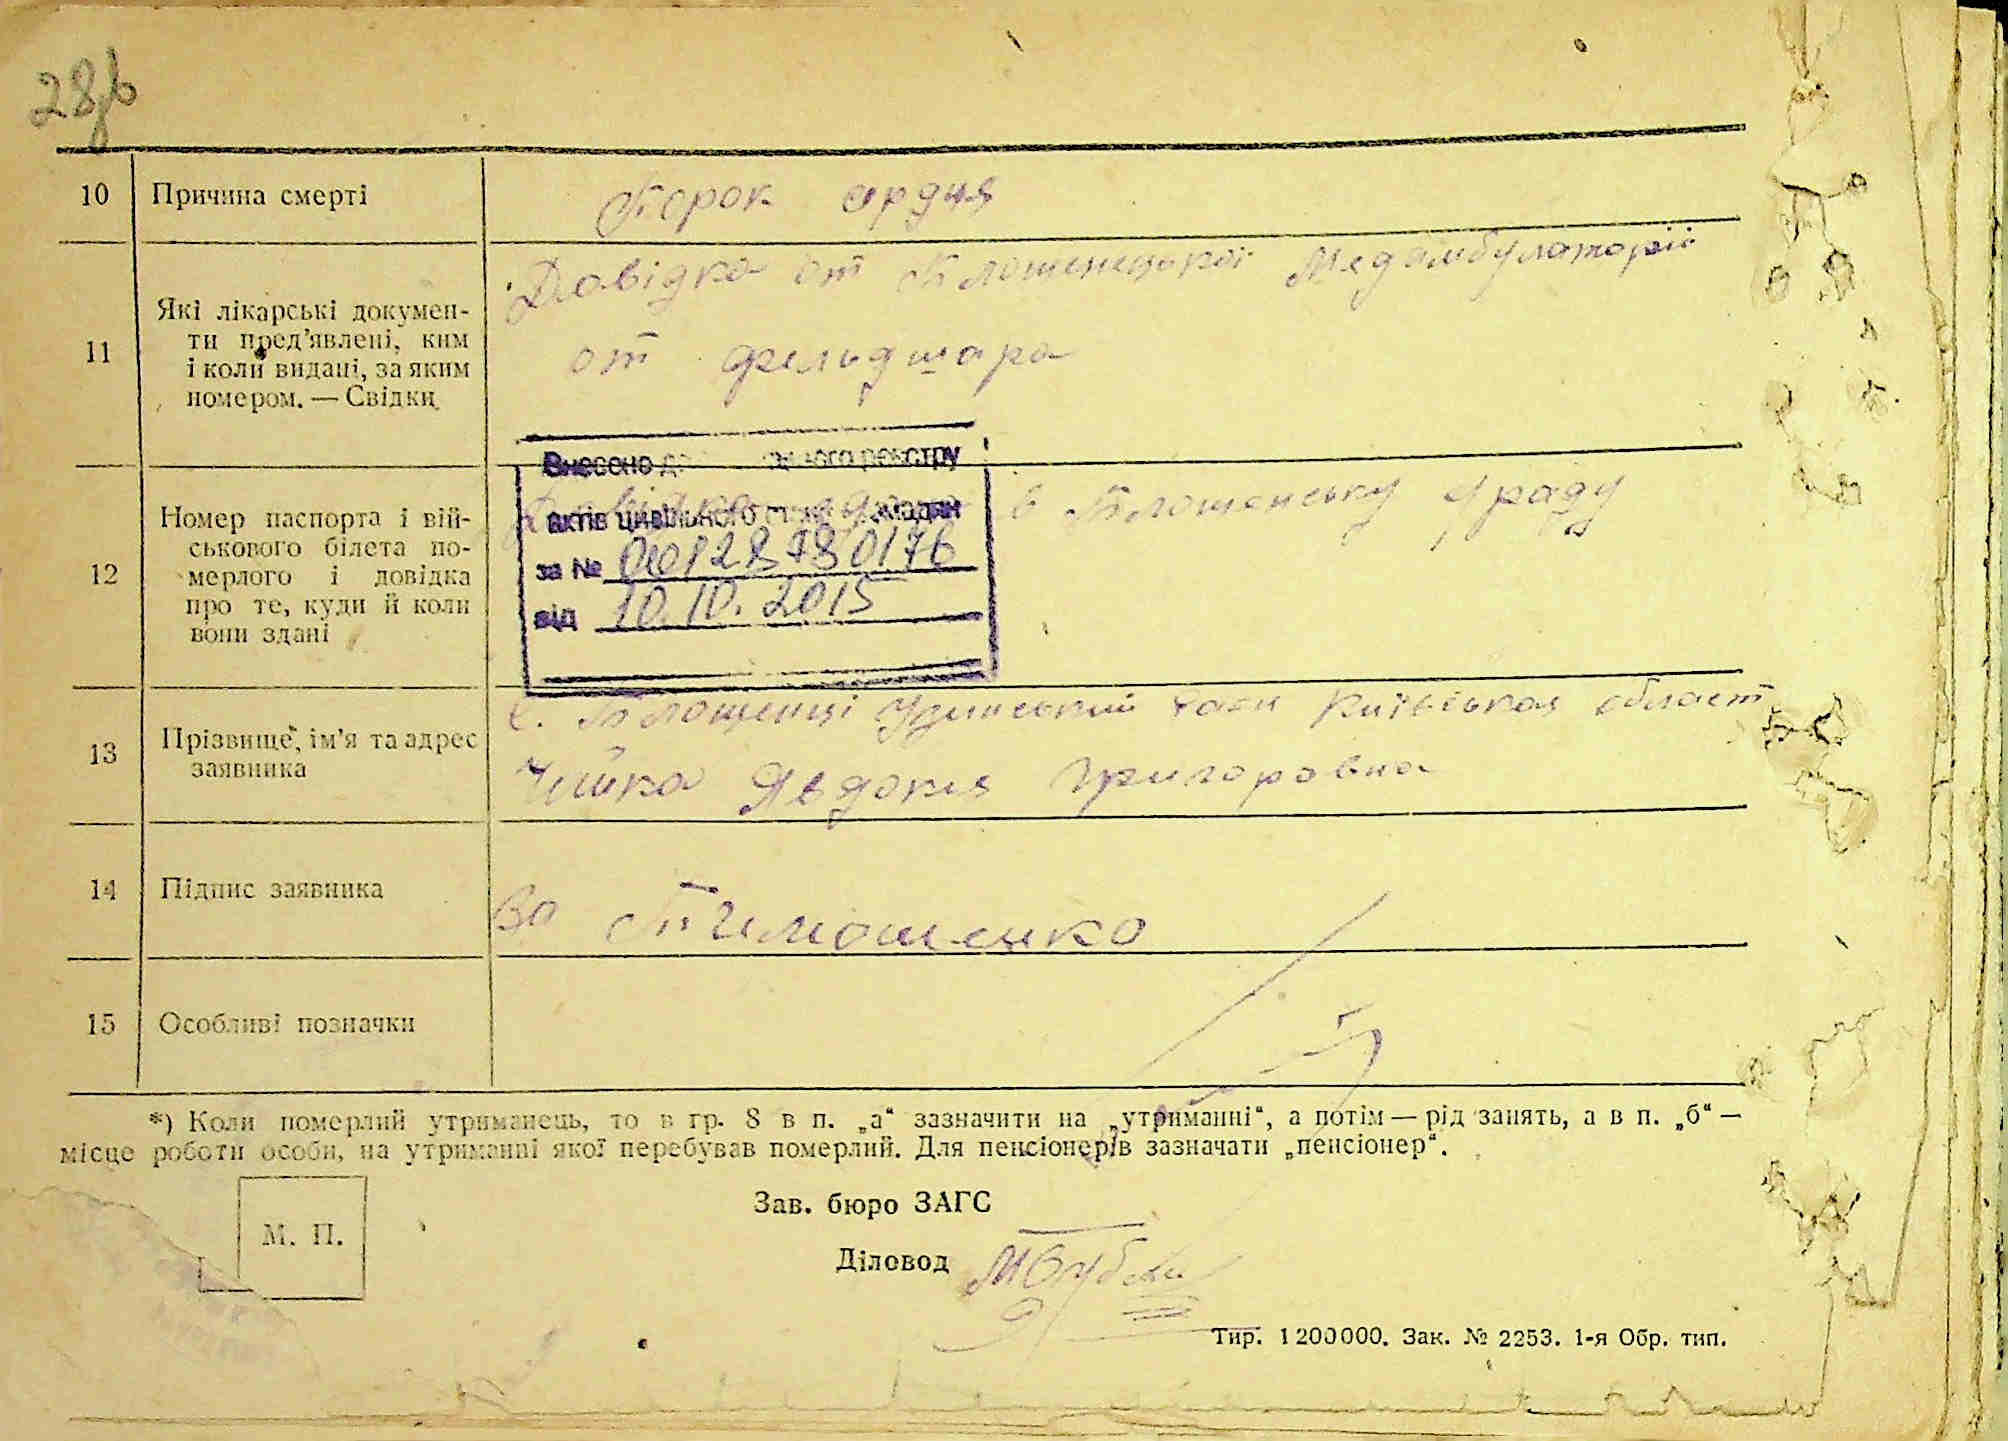 28
10 Причина смерті Порок сердця
Довідка от Плошенецької Медамбулаторії
от фельдшара
11 Які лікарські докумен-
ти пред’явлені, ким
і коли видані, за яким
номером. — Свідки
Внесено до реєстру
актів цивільного громадян
за № 00128780176
від 10.10.2015
в раду
12 Номер паспорта і вій-
ськового білета по-
мерлого і довідка
про те, куди й коли
вони здані
с. район Київськоя област
13 Прізвище, ім’я та адрес
заявника
Явдокия Григоровна
14 Підпис заявника За Тимошенко
15 Особливі позначки
*) Коли померлий утриманець, то в гр. 8 в п. „а“ зазначити на „утриманні“, а потім — рід занять, а в п. „б“ —
місце роботи особи, на утриманні якої перебував померлий. Для пенсіонерів зазначати „пенсіонер“.
М. П.
Зав. бюро ЗАГС
Діловод
Тир. 1200000. Зак. № 2253. 1-я Обр. тип.